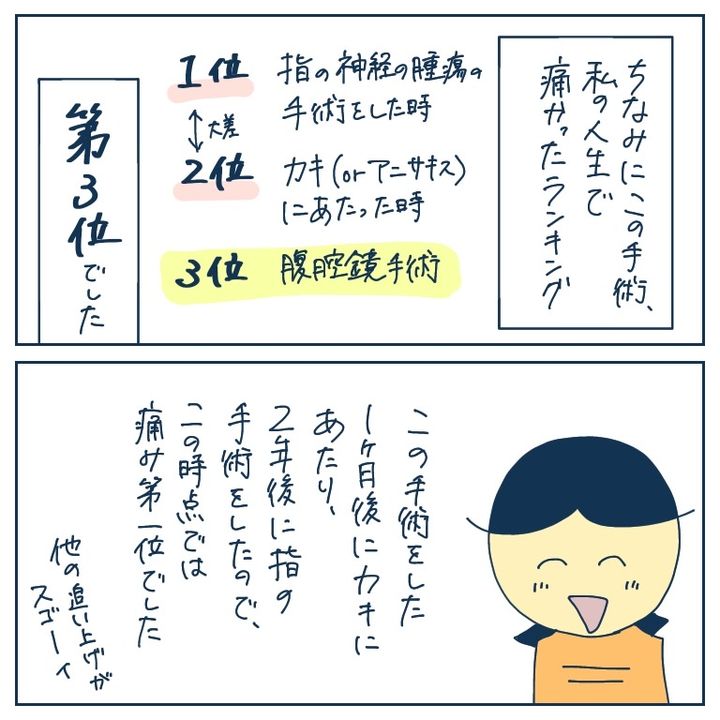 ちなみにこの手術、
私の人生で
痛かったランキング
1位 指の神経の腫瘍の
手術をした時
大差
2位 カキ(orアニサキス)
にあたった時
3位 腹腔鏡手術
第3位でした
この手術をした
1ヶ月後にカキに
あたり、
2年後に指の
手術をしたので、
この時点では
痛み第一位でした
他の追い上げが
スゴーイ